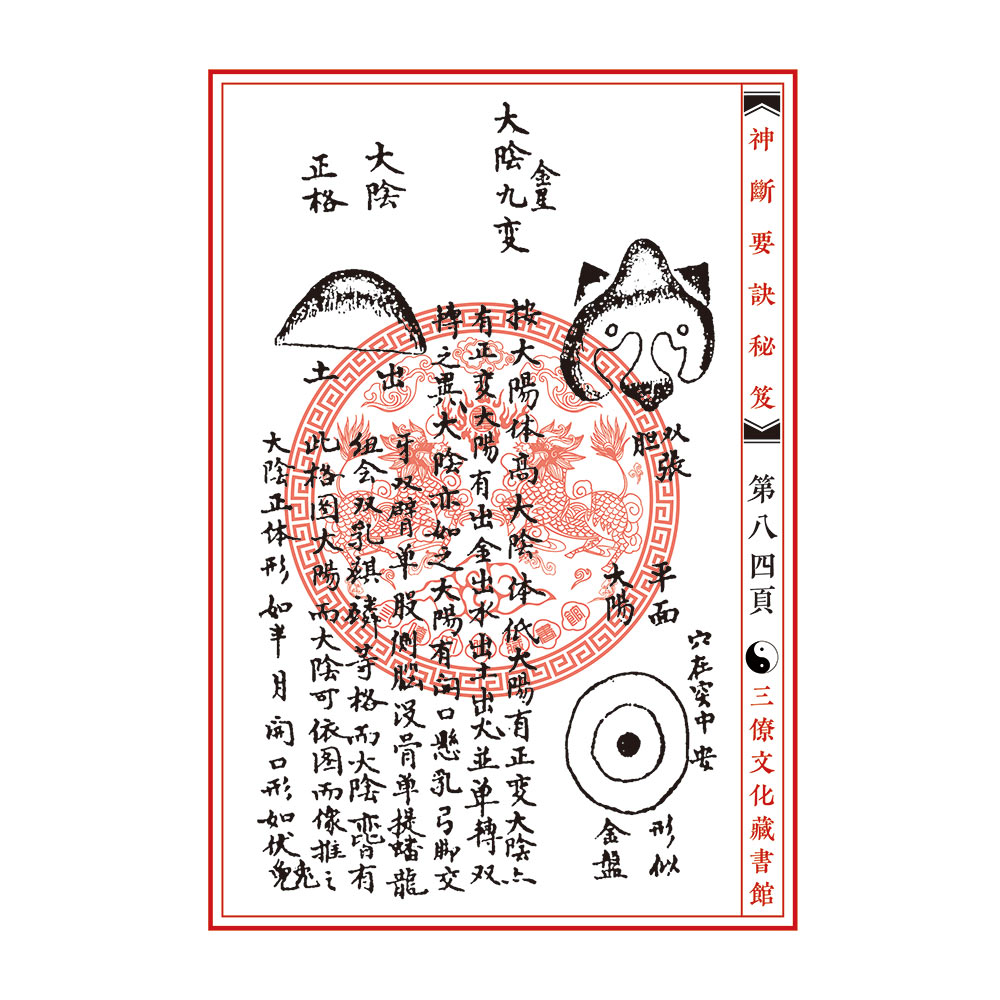 神斷要訣秘笈
第八四頁
三僚文化藏書館
以張
胆
平面
大陽
穴在突中安
形似
金盤
大陰九变
金星
按大陽体高大陰体低大陽有正变大陰亦
有正变大陽有出金出水出土出火並单轉双
轉之異大陰亦如之大陽有開口懸乳弓脚交
牙双臂单股側腦没骨单提蟠龍
纽会双乳麒麟等格而大陰皆有
此格图大陽而大陰可依图而像推之
大陰正体形如半月開口形如伏兔
大陰
正格
出
土